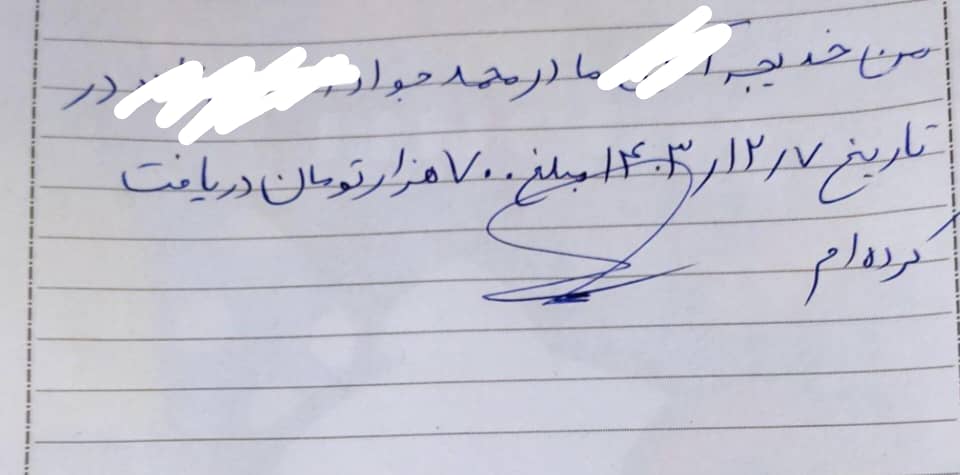 من خدیجه مادر محمد جواد در
تاریخ ۱۴۰۳/۱۲/۷ مبلغ ۷۰۰ هزار تومان دریافت
کرده ام